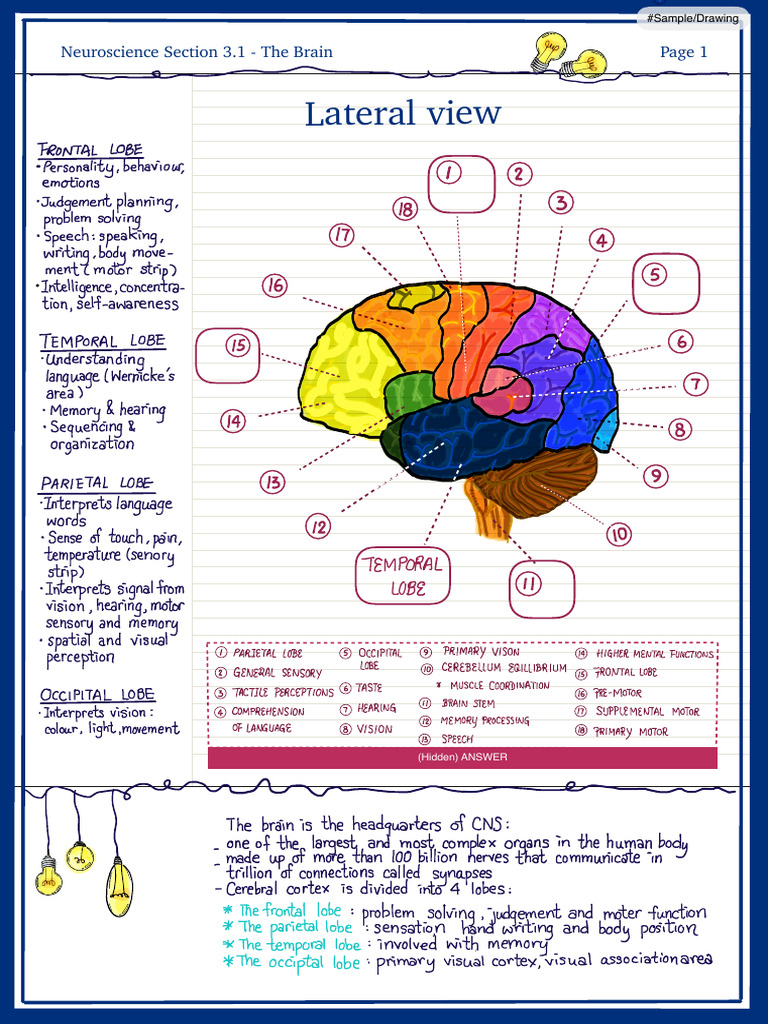 #Sample/Drawing
Neuroscience Section 3.1 - The Brain
Page 1
Lateral view
FRONTAL LOBE
·Personality, behaviour,
emotions
·Judgement planning,
problem solving
·Speech: speaking,
writing, body move-
ment ( motor strip)
·Intelligence, concentra-
tion, self-awareness
TEMPORAL LOBE
·Understanding
language (Wernicke's
area)
· Memory & hearing
· Sequencing &
organization
PARIETAL LOBE
·Interprets language
words
· Sense of touch, pain,
temperature (senory
strip)
·Interprets signal from
vision, hearing, motor
sensory and memory
· spatial and visual
perception
OCCIPITAL LOBE
· Interprets vision:
colour, light, movement
1
2
3
4
5
6
7
8
9
10
11
TEMPORAL
LOBE
12
13
14
15
16
17
18
1 PARIETAL LOBE
2 GENERAL SENSORY
3 TACTILE PERCEPTIONS
4 COMPREHENSION
OF LANGUAGE
5 OCCIPITAL
LOBE
6 TASTE
7 HEARING
8 VISION
9 PRIMARY VISON
10 CEREBELLUM EQILIBRIUM
* MUSCLE COORDINATION
11 BRAIN STEM
12 MEMORY PROCESSING
13 SPEECH
14 HIGHER MENTAL FUNCTIONS
15 FRONTAL LOBE
16 PRE-MOTOR
17 SUPPLEMENTAL MOTOR
18 PRIMARY MOTOR
(Hidden) ANSWER
The brain is the headquarters of CNS:
- one of the largest and most complex organs in the human body
- made up of more than 100 billion nerves that communicate in
trillion of connections called synapses
- Cerebral cortex is divided into 4 lobes:
* The frontal lobe : problem solving, judgement and moter function
* The parietal lobe : sensation hand writing and body position
* The temporal lobe : involved with memory
* The occiptal lobe : primary visual cortex, visual association area